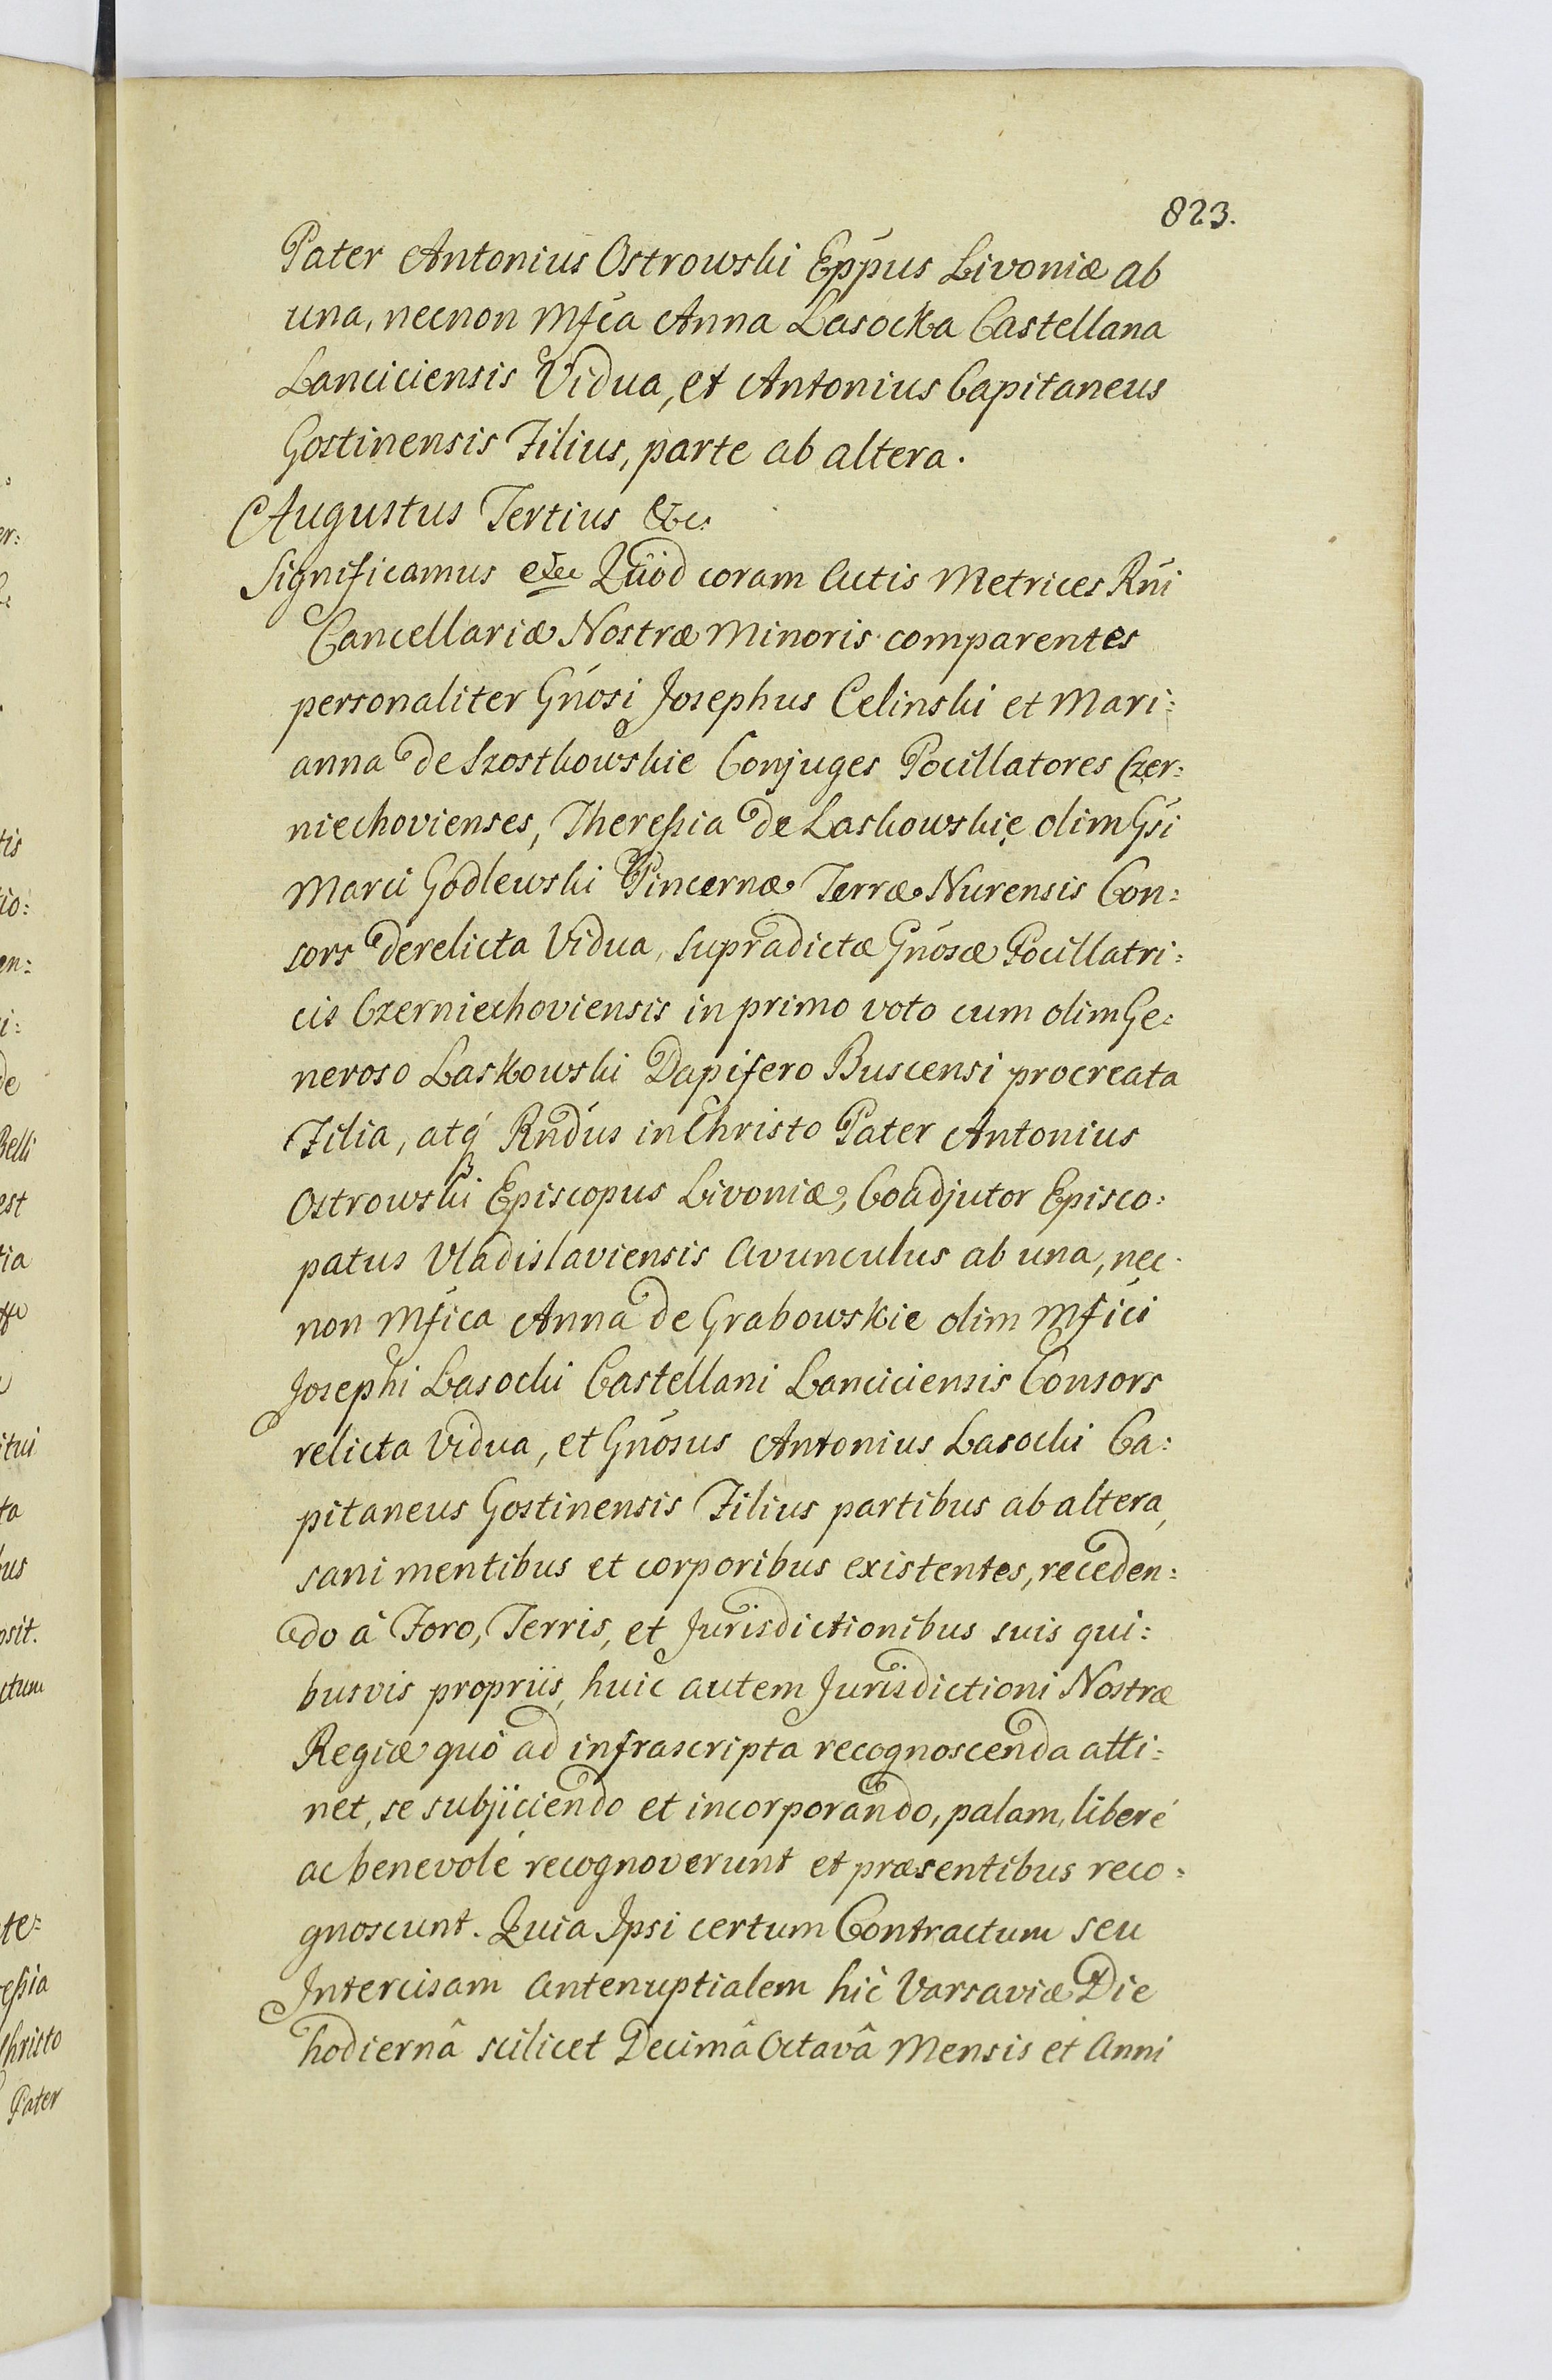 823.
Pater Antonius Ostrowski Eppus Livoniæ ab
una, necnon Mfca Anna Lasocka Castellana
Lanciciensis Vidua, et Antonius Capitaneus
Gostinensis Filius, parte ab altera.
Augustus Tertius &c.
Significamus etc Quod coram Actis Metrices Rni
Cancellariæ Nostræ Minoris comparentes
personaliter Gnosi Josephus Celinski et Mari:
anna de Szostkowskie Conjuges Pocillatores Czer:
niechovienses, Theresia de Laskowskie olim Gsi
Marci Godlewski Pincernæ Terræ Nurensis Con:
sors derelicta Vidua, supradictæ Gnosæ Pocillatri:
cis Czerniechoviensis in primo voto cum olim Ge:
neroso Laskowski Dapifero Buscensi procreata
Filia, atq Rndus in Christo Pater Antonius
Ostrowski Episcopus Livoniæ, Coadjutor Episco:
patus Vladislaviensis Avunculus ab una, nec
non Mfica Anna de Grabowskie olim Mfici
Josephi Lasocki Castellani Lanciciensis Consors
relicta Vidua, et Gnosus Antonius Lasocki Ca:
pitaneus Gostinensis Filius partibus ab altera,
sani mentibus et corporibus existentes, receden:
do â Foro, Terris, et Jurisdictionibus suis qui:
busvis propriis, huic autem Jurisdictioni Nostræ
Regiæ quò ad infrascripta recognoscenda atti:
net, se subjiciendo et incorporando, palam, liberé
ac benevolé recognoverunt et præsentibus reco:
gnoscunt. Quia Ipsi certum Contractum seu
Intercisam Antenuptialem hic Varsaviæ Die
hodiernâ scilicet Decimâ Octavâ Mensis et Anni